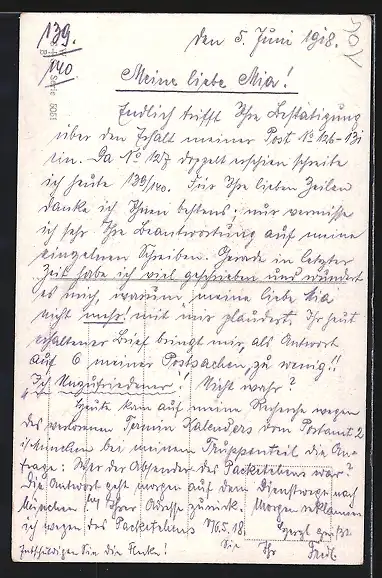 139.
140
den 5. Juni 1918.
Serie 5051
Meine liebe Mia!
Endlich trifft Ihre Bestätigung
über den Erhalt meiner Post No 126-131
ein. Da No 127 doppelt erschien schreibe
ich heute 139/140. Für Ihre lieben Zeilen
danke ich Ihnen bestens, nur vermisse
ich sehr Ihre Beantwortung auf meine
einzelnen Schreiben. Gerade in letzter
Zeit habe ich viel geschrieben und wundert
es mich, warum meine liebe Mia
nicht mehr mit mir plaudert. Ihr heut
erhaltener Brief bringt mir, als Antwort
auf 6 meiner Postsachen, zu wenig!!
Ich Unzufriedener! Nicht wahr?
Heute kam auf meine Recherche wegen
des verlorenen Termin Kalenders vom Postamt 2
in München bei meinem Truppenteil die An-
frage: Wer der Absender des Packetchens war?
Die Antwort geht morgen auf dem Dienstwege nach
München Ihrer Adresse zurück. Morgen reklamiere
ich wegen des Packetchens 16.5.18. Herzl. grüßt
Sie Ihr
Entschuldigen Sie die Flecke!